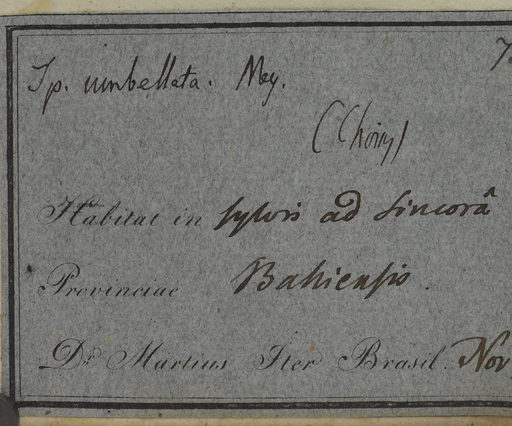 Ip. umbellata. Mey.
(Choisy)
Habitat in sylvis ad Sincorâ
Provinciae Bahiensis.
Dr. Martius Iter Brasil. Nov